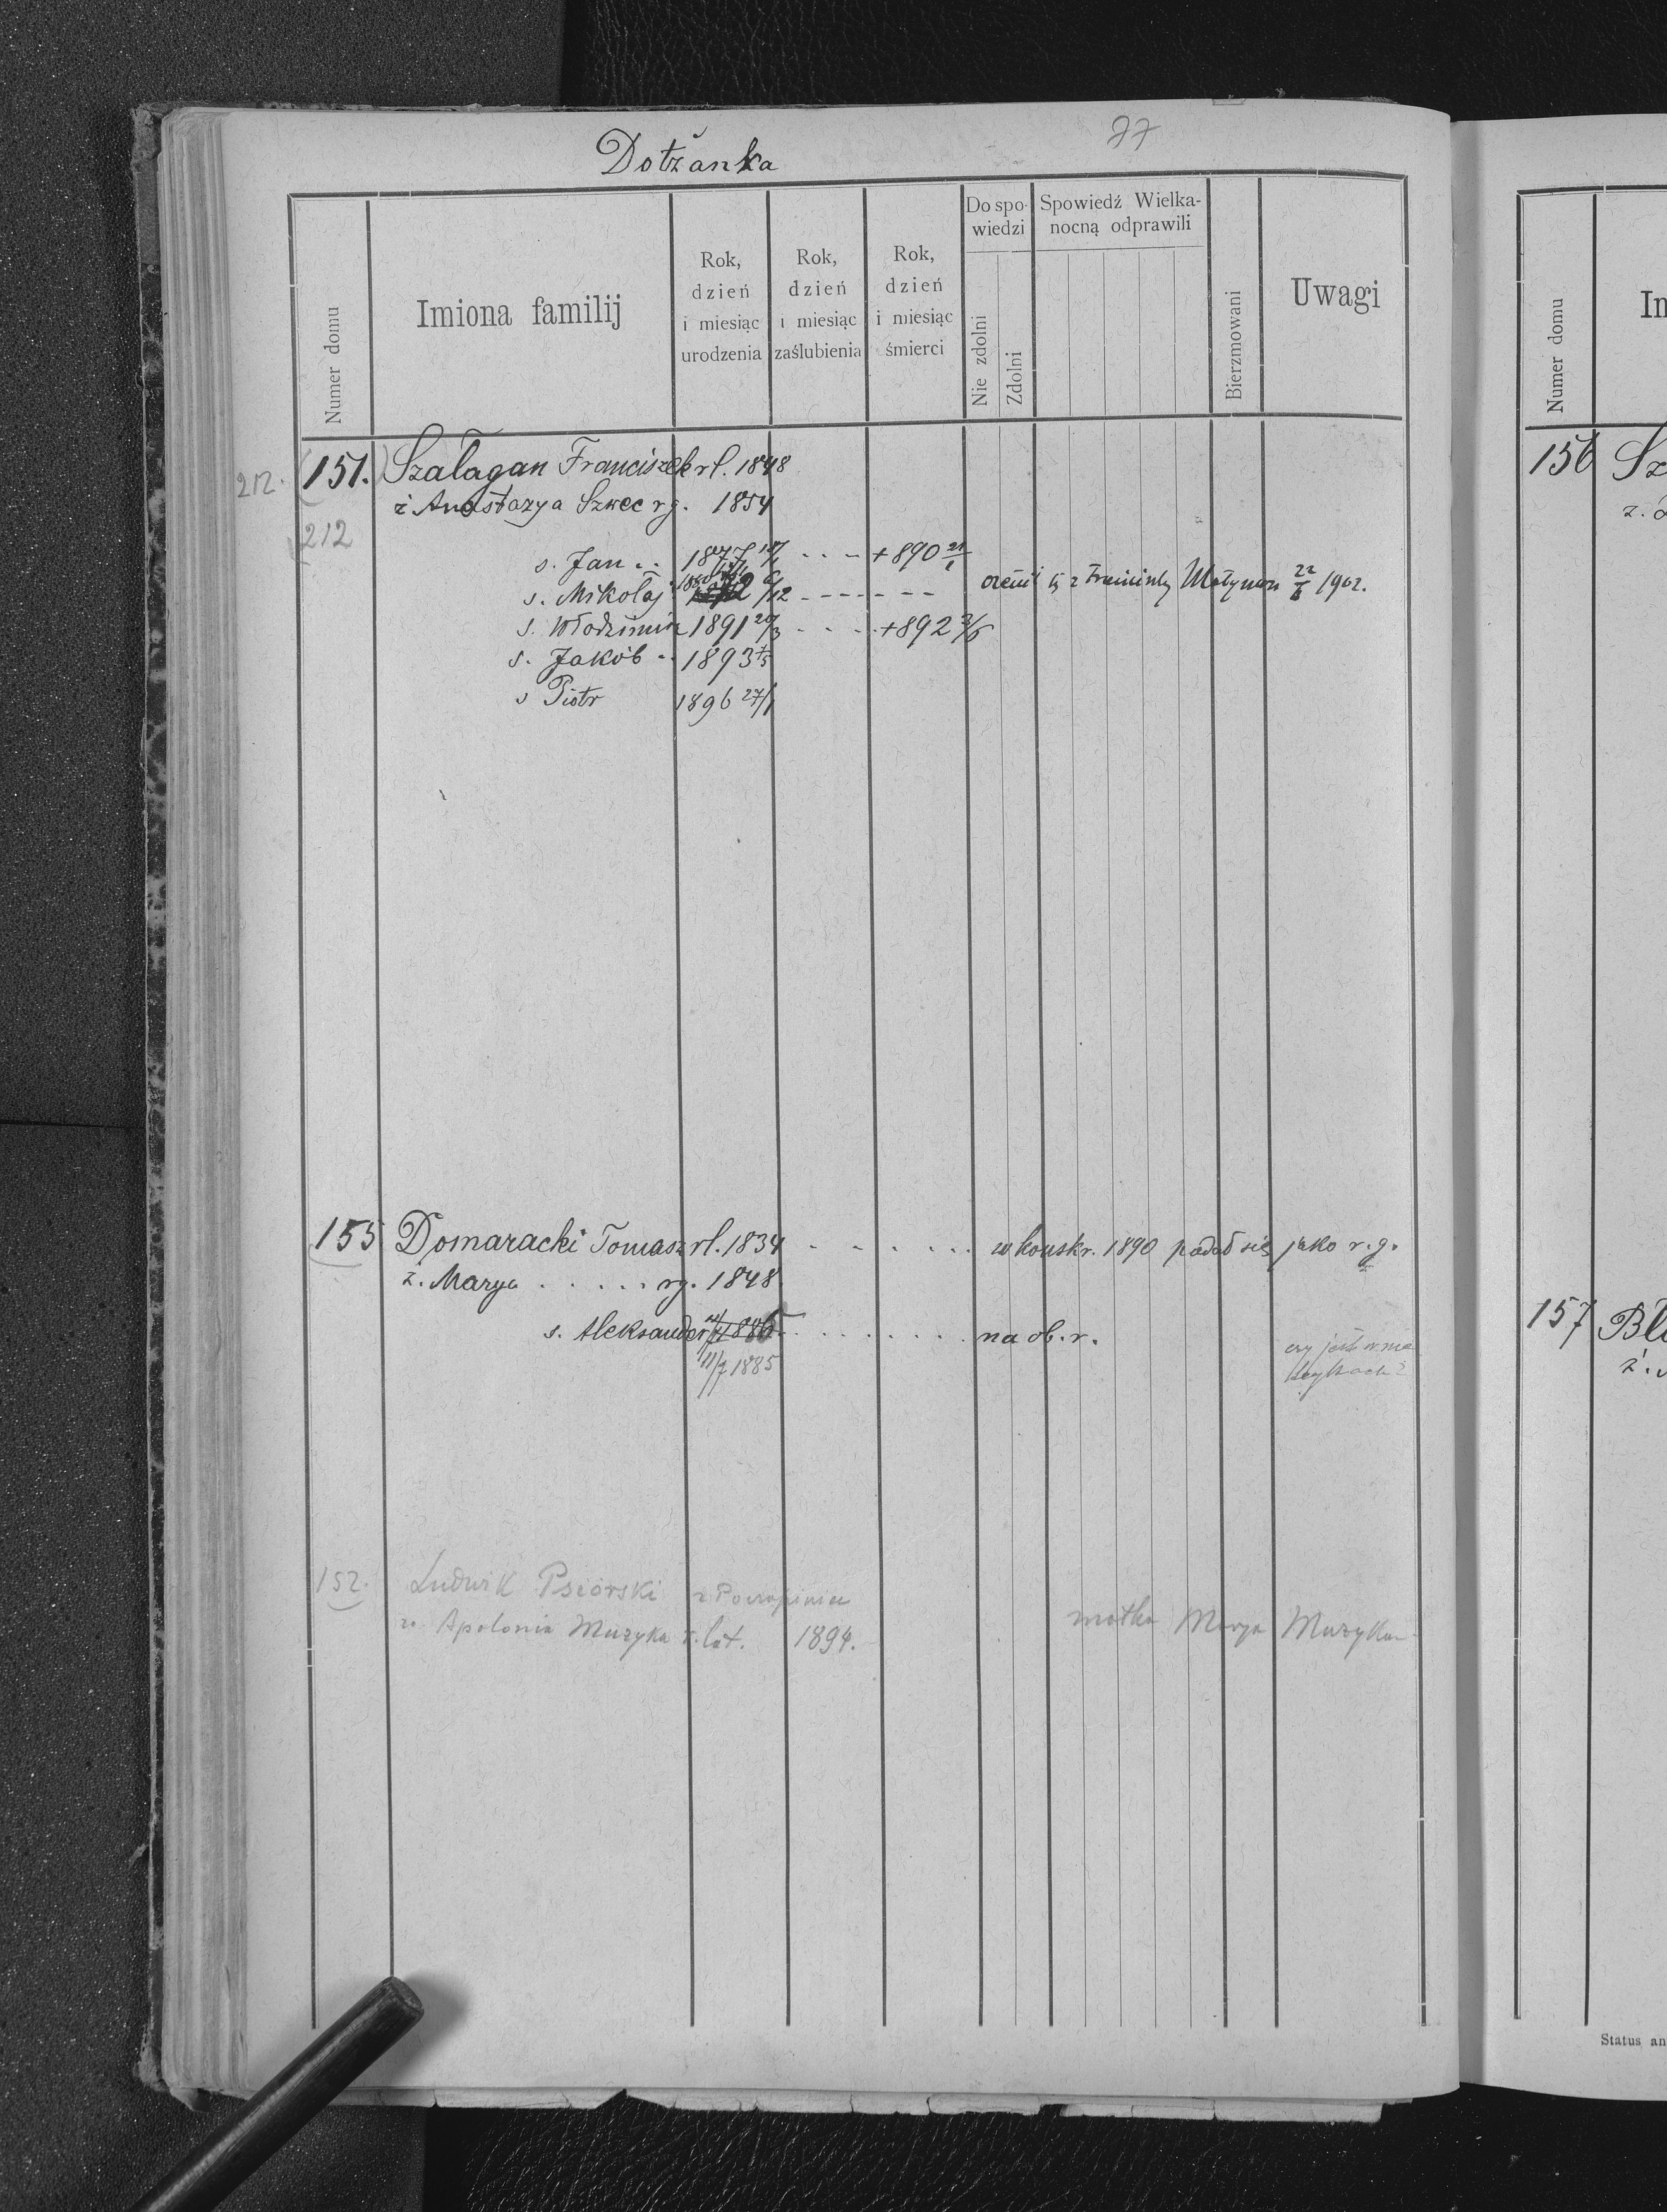 77
Dołżanka
Numer domu
Imiona familij
Rok, dzień i miesiąc urodzenia
Rok, dzień i miesiąc zaślubienia
Rok, dzień i miesiąc śmierci
Do spowiedzi
Nie zdolni
Zdolni
Spowiedź Wielkanocną odprawili
Bierzmowani
Uwagi
212. 151. Szałagan Franciszek rł. 1848
212 ż Anastazya Szwec rg. 1854
s. Jan .. 1877 - - - +890 21/1
s. Mikołaj 6/12 - - - - - - z 22 1902.
s. Włodzimierz 1891 20/3 - - - +892
s. Jakób .. 1893
s Piotr 1896 27/1
155 Domaracki Tomasz rł. 1834 . . . . . . w konskr. 1890 podał się jako r.g.
ż. Marya . . . . . rg. 1848
s. Aleksander 1886 . . . . . . . . na ob. r. czy jest w me
11/7 1885 trykach?
152. Ludwik Psiorski z
ż. Apolonia Muzyka r. lat. 1894. matka Marya Muzyka
Numer domu
Im
156 Sz
ż.
157 Bł
ż.
Status an